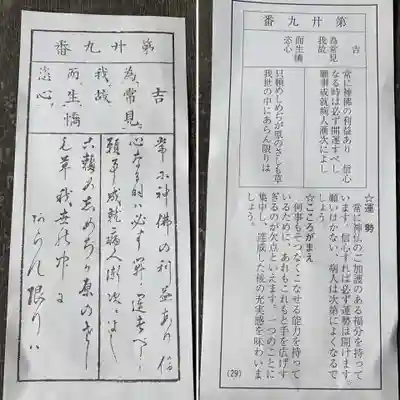 第廿九番
吉
為常見
我故
而生憍
恣心
常に神佛の利益あり信
心なる時は必ず開運すべし
願事成就病人漸次によし
只頼めしめぢが原のさしも
草我世の中に
あらん限りは
第廿九番
吉
為常見
我故
而生憍
恣心
常に神佛の利益あり 信心
なる時は必ず開運すべし
願事成就病人漸次によし
只頼めしめぢが原のさしも草
我世の中にあらん限りは
☆運勢
常に神仏のご加護のある福分を持って
います。信心すれば必ず運勢は開けます。
願いはかない、病人は次第によくなるで
しょう。
☆こころがまえ
何事もそつなくこなせる能力を持って
いるために、あれもこれもと手を広げす
ぎるのが欠点といえます。一つのことに
集中し、達成した後の充実感を味わいま
しょう。
(29)